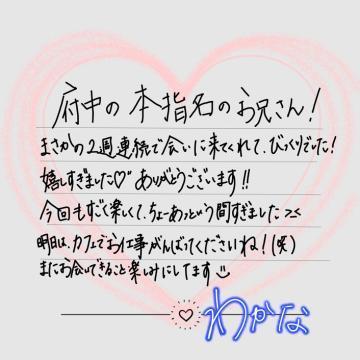 府中の本指名のお兄さん!
まさかの2週連続で会いに来てくれて、びっくりでした!
嬉しすぎました♡ ありがとうございます!!
今回もすごく楽しくて、ちょーあっという間すぎました><
明日は、カフェでお仕事がんばってくださいね!(笑)
またお会いできること楽しみにしてます
わかな